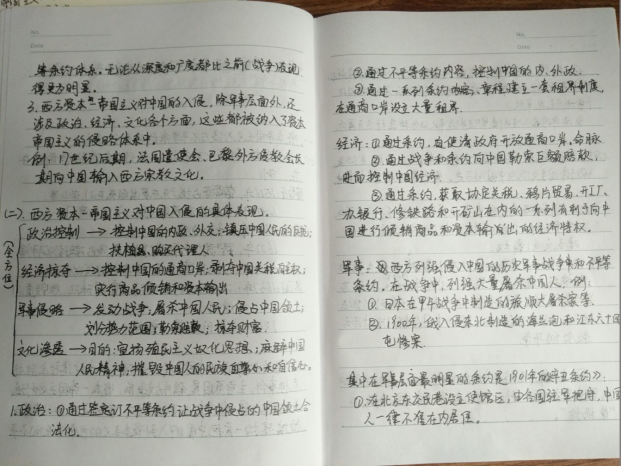 等条约体系。无论从深度和广度都比之前(战争)表现
得更为明显。
3.西方资本-帝国主义对中国的入侵,除军事层面外,还
涉及政治、经济、文化各个方面,这些都被纳入了资本
帝国主义的侵略体系中。
例:17世纪后期,法国遣使会、巴黎外方传教会长
期向中国输入西方宗教文化。
(二).西方资本-帝国主义对中国入侵的具体表现。
(全方位)
政治控制 → 控制中国的内政、外交;镇压中国人民的反抗;
扶植、收买代理人
经济掠夺 → 控制中国的通商口岸;剥夺中国关税自主权;
实行商品倾销和资本输出
军事侵略 → 发动战争,屠杀中国人民;侵占中国领土;
划分势力范围;勒索赔款,掠夺财富
文化渗透 → 目的:宣扬殖民主义奴化思想;麻醉中国
人民精神,摧毁中国人的民族自尊心和自信心。
1.政治:①通过签订不平等条约让战争中侵占的中国领土合
法化。
No.
Date
②通过不平等条约内容,控制中国的内、外政。
③通过一系列条约内容、章程建立一套租界制度,
在通商口岸设立大量租界。
经济:①通过条约,迫使清政府开放通商口岸。命脉
②通过战争和条约向中国勒索巨额赔款,
进而控制中国经济
③通过条约,获取协定关税、鸦片贸易、开工厂、
办银行、修铁路和开矿山在内的一系列有利于向中
国进行倾销商品和资本输出的经济特权。
军事:西方列强侵入中国的历史军事战争和不平等
条约。在战争中,列强大量屠杀中国人。例:
①.日本在甲午战争中制造的旅顺大屠杀案等
②.1900年,俄入侵东北制造的海兰泡和江东六十四
屯惨案.
集中在军事层面最明显的条约是1901年《辛丑条约》:
①.在北京东交民巷设立使馆区,由各国驻军把守,中国
人一律不准在内居住。
No.
Date